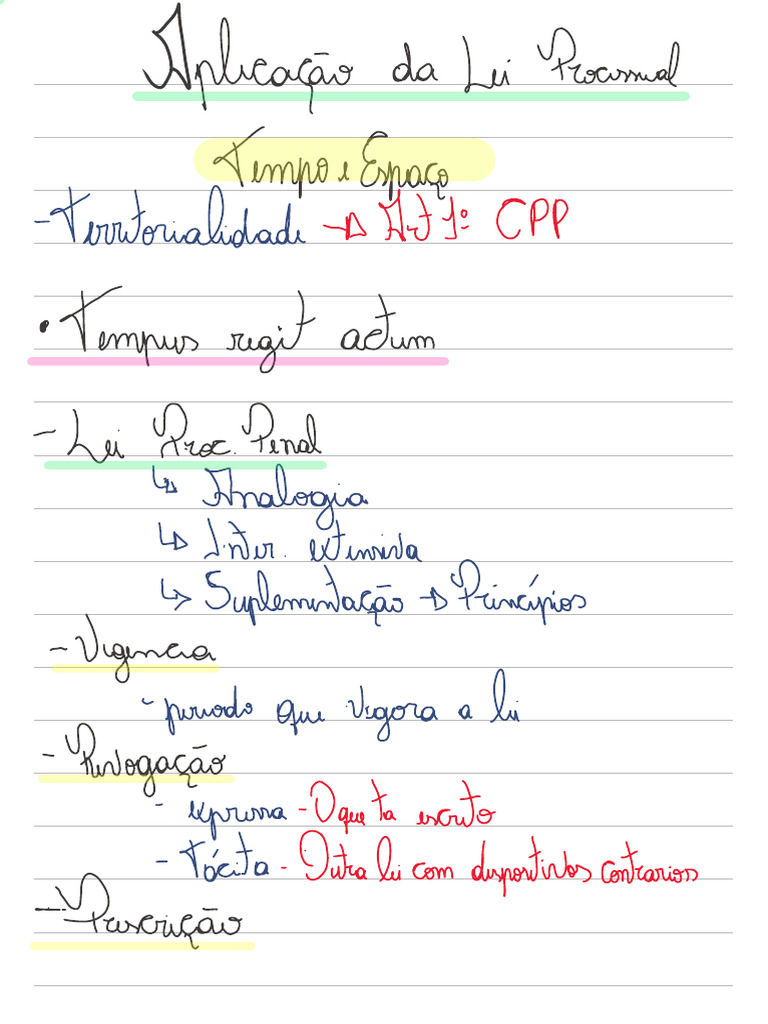 Aplicação da Lei Processual
Tempo e Espaço
- Territorialidade → Art 1º CPP
• Tempus regit actum
- Lei Proc. Penal
↳ Analogia
↳ Inter. extensiva
↳ Suplementação → Princípios
- Vigencia
- periodo que vigora a lei
- Revogação
- expressa - O que ta escrito
- Tácita - Outra lei com dispositivos contrarios
- Prescrição